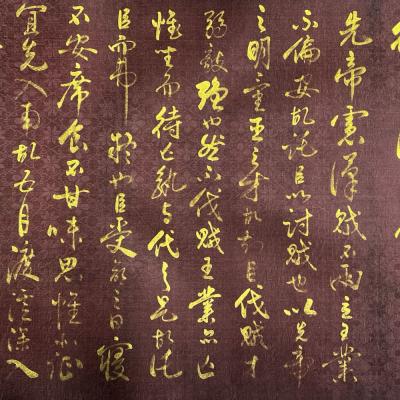 先帝慮漢賊不兩立王業
不偏安故託臣以討賊也以先帝
之明量臣之才故知臣伐賊才
弱敵強也然不伐賊王業亦亡
惟坐而待亡孰与伐之是故託
臣而弗疑也臣受命之日寢
不安席食不甘味思惟北征
宜先入南故五月渡瀘深入